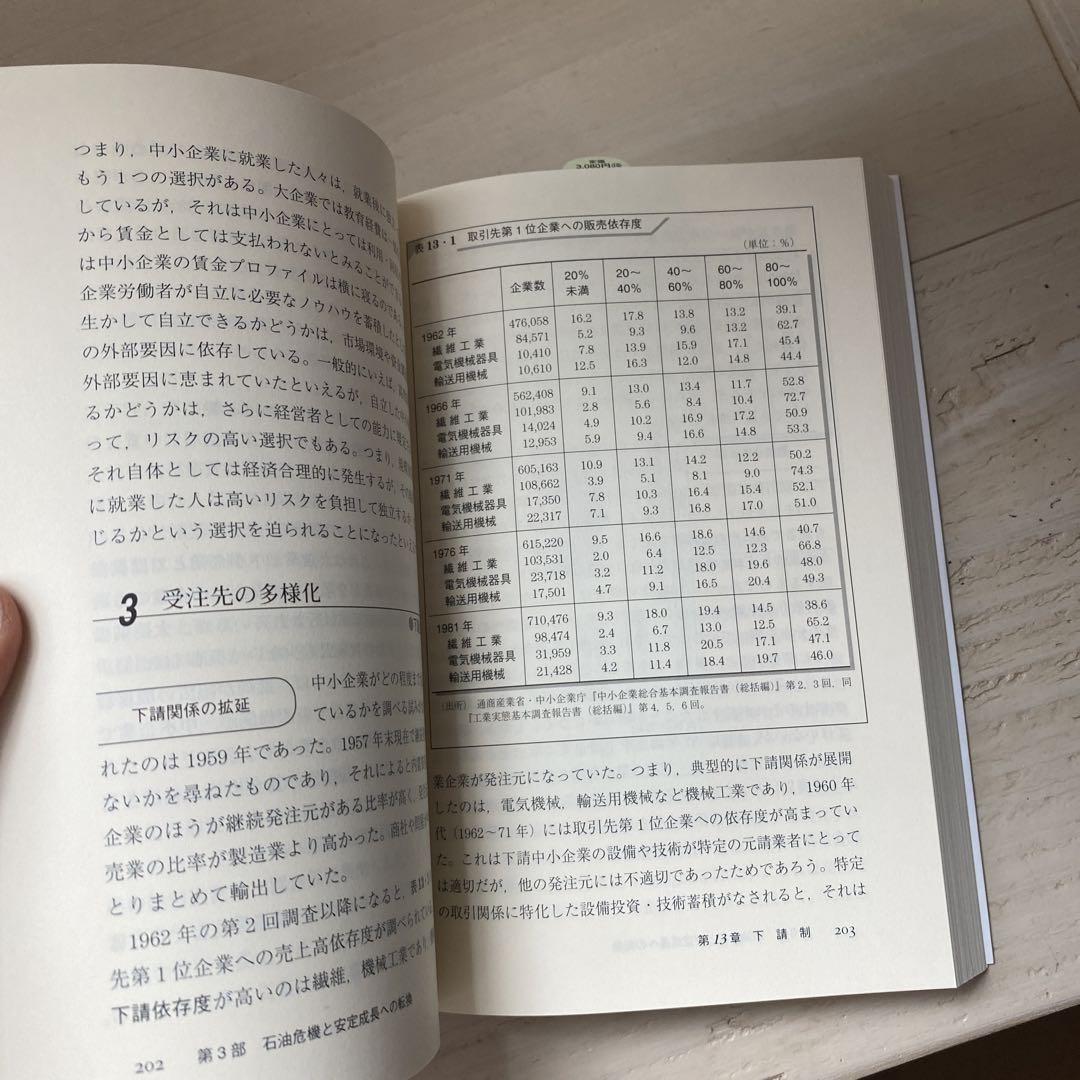 つまり，中小企業に就業した人々は，就業後に独
もう1つの選択がある。大企業では教育経費は
しているが，それは中小企業にとっては利用・
から賃金としては支払われないとみることがで
は中小企業の賃金プロファイルは横に寝るのである。
企業労働者が自立に必要なノウハウを蓄積したと
生かして自立できるかどうかは，市場環境や
の外部要因に依存している。一般的にいえば，
外部要因に恵まれていたといえるが，自立した
るかどうかは，さらに経営者としての能力に
って，リスクの高い選択でもある。つまり，
それ自体としては経済合理的に発生するが，その
に就業した人は高いリスクを負担して独立するか
じるかという選択を迫られることになったといえ
3 受注先の多様化
下請関係の拡延
中小企業がどの程度まで
ているかを調べる試み
れたのは1959年であった。1957年末現在で継続
ないかを尋ねたものであり，それによると内
企業のほうが継続発注元がある比率が高く，
売業の比率が製造業より高かった。商社や
とりまとめて輸出していた。
1962年の第2回調査以降になると，表13・1
先第1位企業への売上高依存度が調べられてい
下請依存度が高いのは繊維，機械工業であり，
202 第3部 石油危機と安定成長への転換
定価
3,080円
表13・1 取引先第1位企業への販売依存度
（単位：％）
企業数 20%未満 20～40% 40～60% 60～80% 80～100%
1962年 476,058 16.2 17.8 13.8 13.2 39.1
繊維工業 84,571 5.2 9.3 9.6 13.2 62.7
電気機械器具 10,410 7.8 13.9 15.9 17.1 45.4
輸送用機械 10,610 12.5 16.3 12.0 14.8 44.4
1966年 562,408 9.1 13.0 13.4 11.7 52.8
繊維工業 101,983 2.8 5.6 8.4 10.4 72.7
電気機械器具 14,024 4.9 10.2 16.9 17.2 50.9
輸送用機械 12,953 5.9 9.4 16.6 14.8 53.3
1971年 605,163 10.9 13.1 14.2 12.2 50.2
繊維工業 108,662 3.9 5.1 8.1 9.0 74.3
電気機械器具 17,350 7.8 10.3 16.4 15.4 52.1
輸送用機械 22,317 7.1 9.3 16.8 17.0 51.0
1976年 615,220 9.5 16.6 18.6 14.6 40.7
繊維工業 103,531 2.0 6.4 12.5 12.3 66.8
電気機械器具 23,718 3.2 11.2 18.0 19.6 48.0
輸送用機械 17,501 4.7 9.1 16.5 20.4 49.3
1981年 710,476 9.3 18.0 19.4 14.5 38.6
繊維工業 98,474 2.4 6.7 13.0 12.5 65.2
電気機械器具 31,959 3.3 11.8 20.5 17.1 47.1
輸送用機械 21,428 4.2 11.4 18.4 19.7 46.0
（出所） 通商産業省・中小企業庁『中小企業総合基本調査報告書（総括編）』第2，3回，同
『工業実態基本調査報告書（総括編）』第4，5，6回。
業企業が発注元になっていた。つまり，典型的に下請関係が展開
したのは，電気機械，輸送用機械など機械工業であり，1960年
代（1962～71年）には取引先第1位企業への依存度が高まってい
た。これは下請中小企業の設備や技術が特定の元請業者にとって
は適切だが，他の発注元には不適切であったためであろう。特定
の取引関係に特化した設備投資・技術蓄積がなされると，それは
第13章 下請制 203